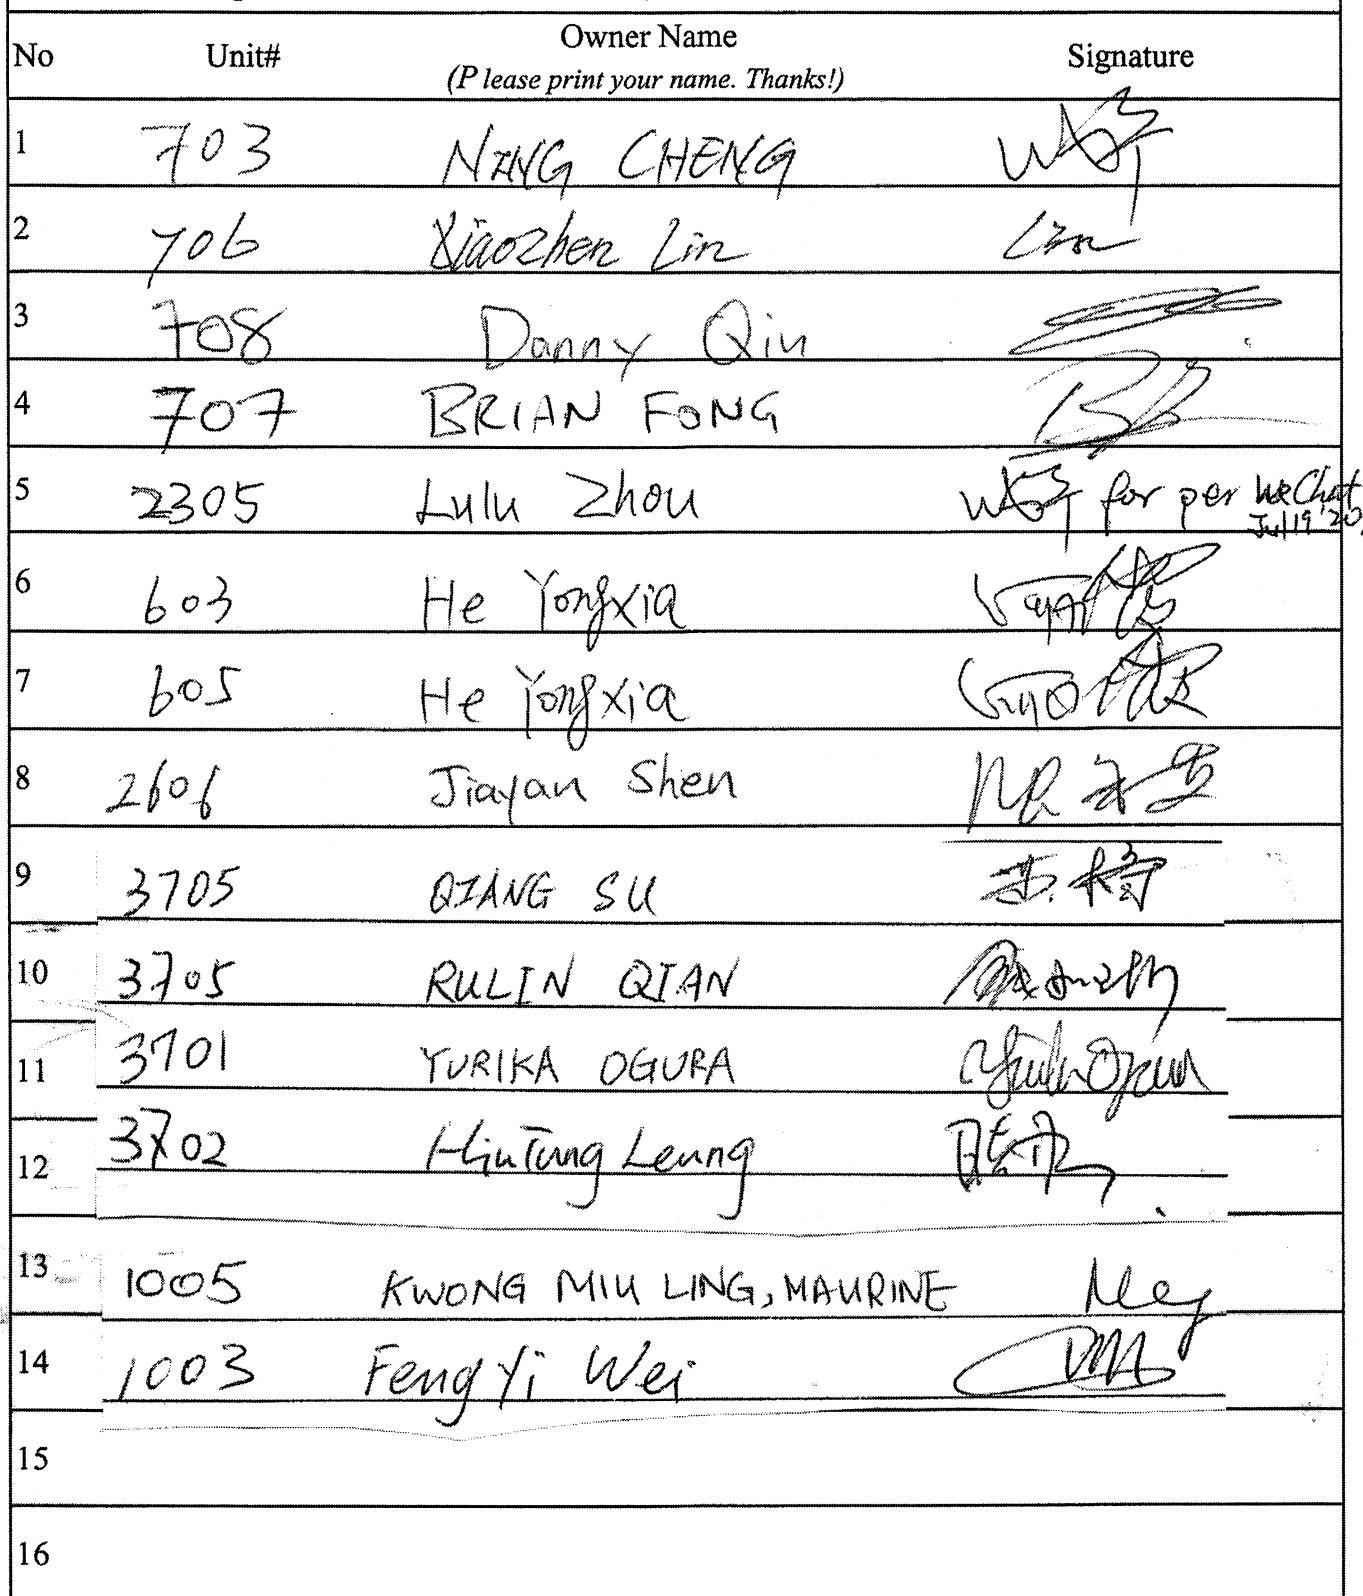 No Unit# Owner Name Signature
(P lease print your name. Thanks!)
1 703 NING CHENG
2 706 Xiaozhen Lin Lin
3 708 Danny Qin
4 707 BRIAN FONG
5 2305 Lulu Zhou for per WeChat
Jul 19 20
6 603 He Yongxia
7 605 He Yongxia
8 2606 Jiayan Shen
9 3705 QIANG SU
10 3705 RULIN QIAN
11 3701 YURIKA OGURA
12 3702 HiuTung Leung
13 1005 KWONG MIU LING, MAURINE
14 1003 FengYi Wei
15
16